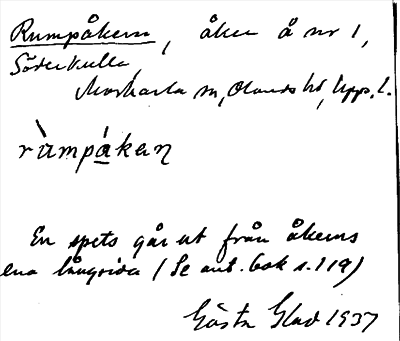 Rumpåkern, åker å nr 1,
Söderkulla,
Morkarla sn, Olands hd, Upps. l.
rùmpåkaṇ
En spets går ut från åkerns
ena långsida (Se ant. bok s. 119)
Gösta Glad 1937